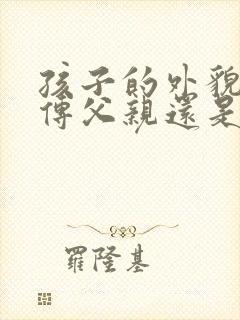 孩子的外貌
傳父親還是
羅隆基